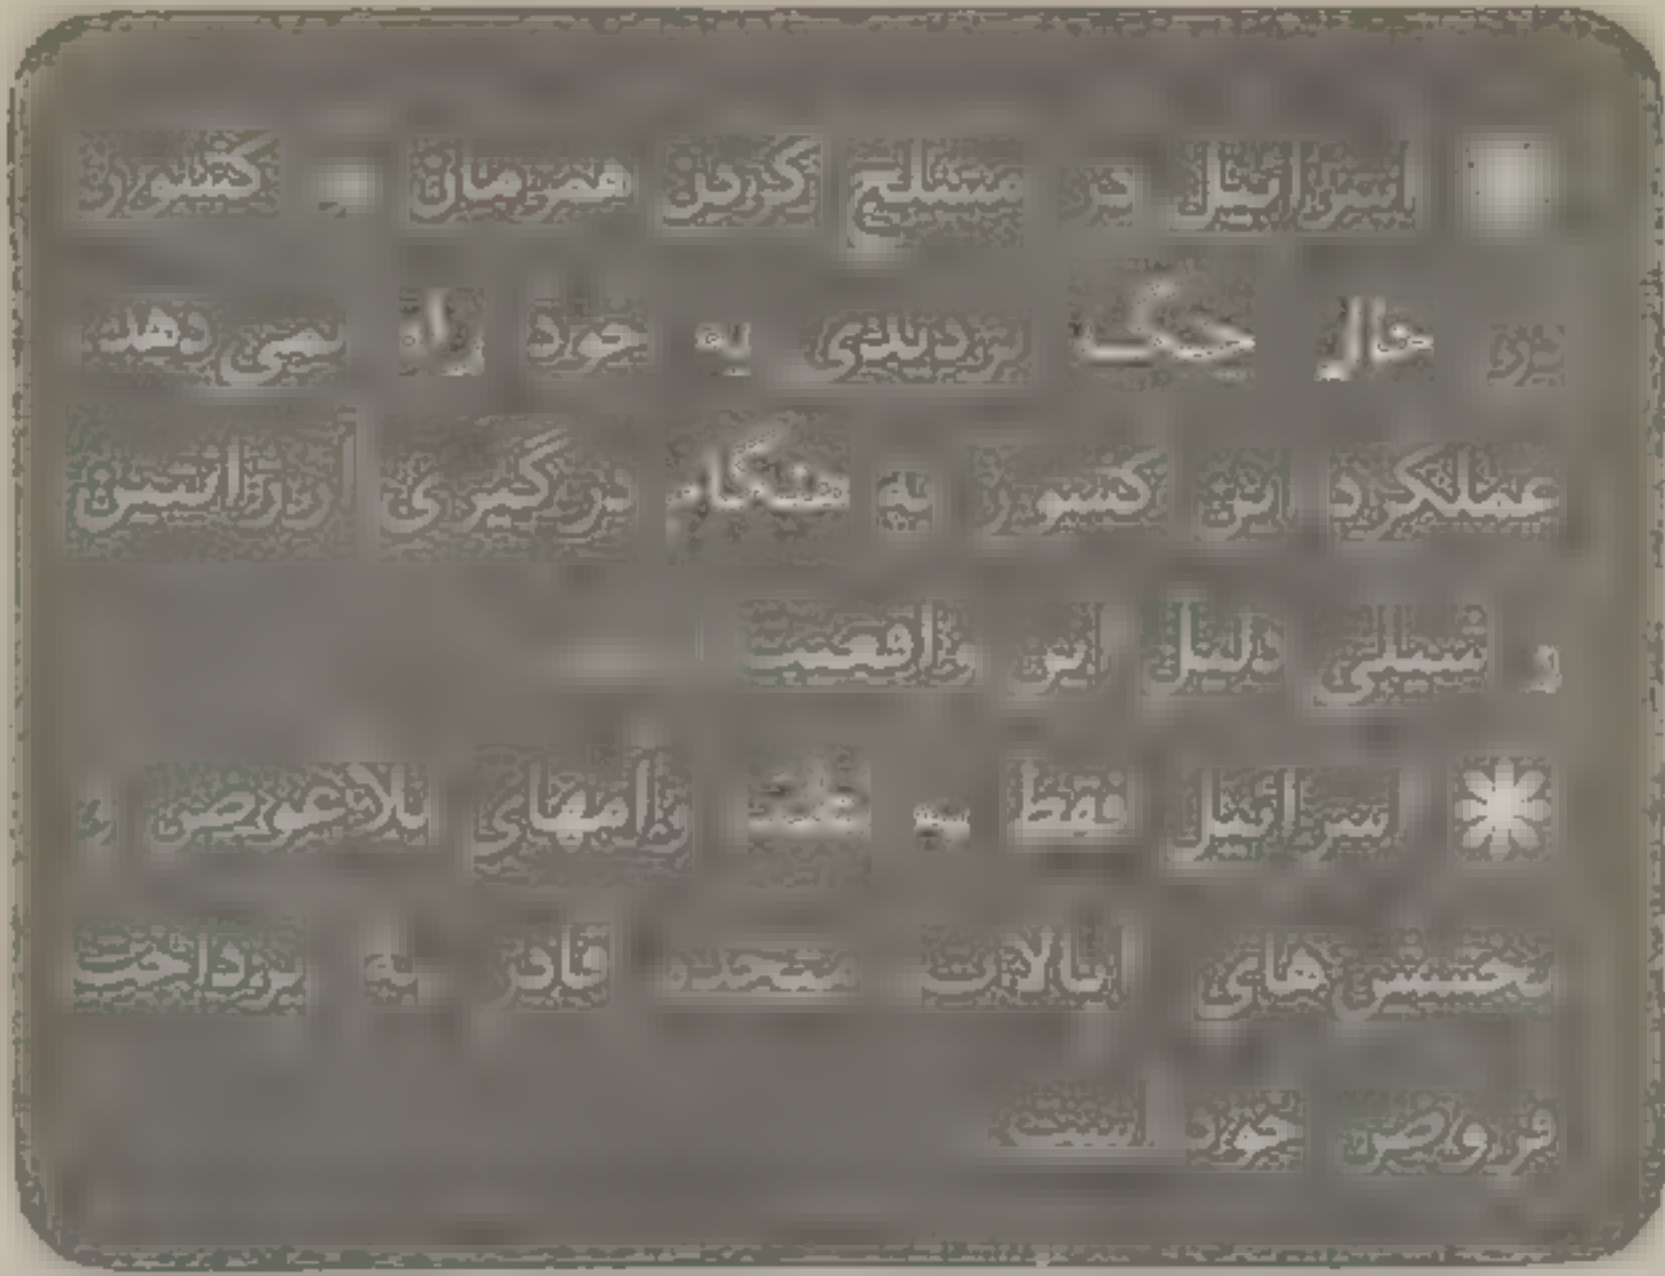 اسرائیل در مسلح کردن همزمان کشور
در حال جنگ تردیدی به خود راه نمی دهد
عملکرد این کشور به هنگام درگیری اورژانسین
شیلی دلیل این
اسرائیل فقط به وامهای بلاعوض و
بخشش های ایالات متحده قادر به پرداخت
قروض خود است